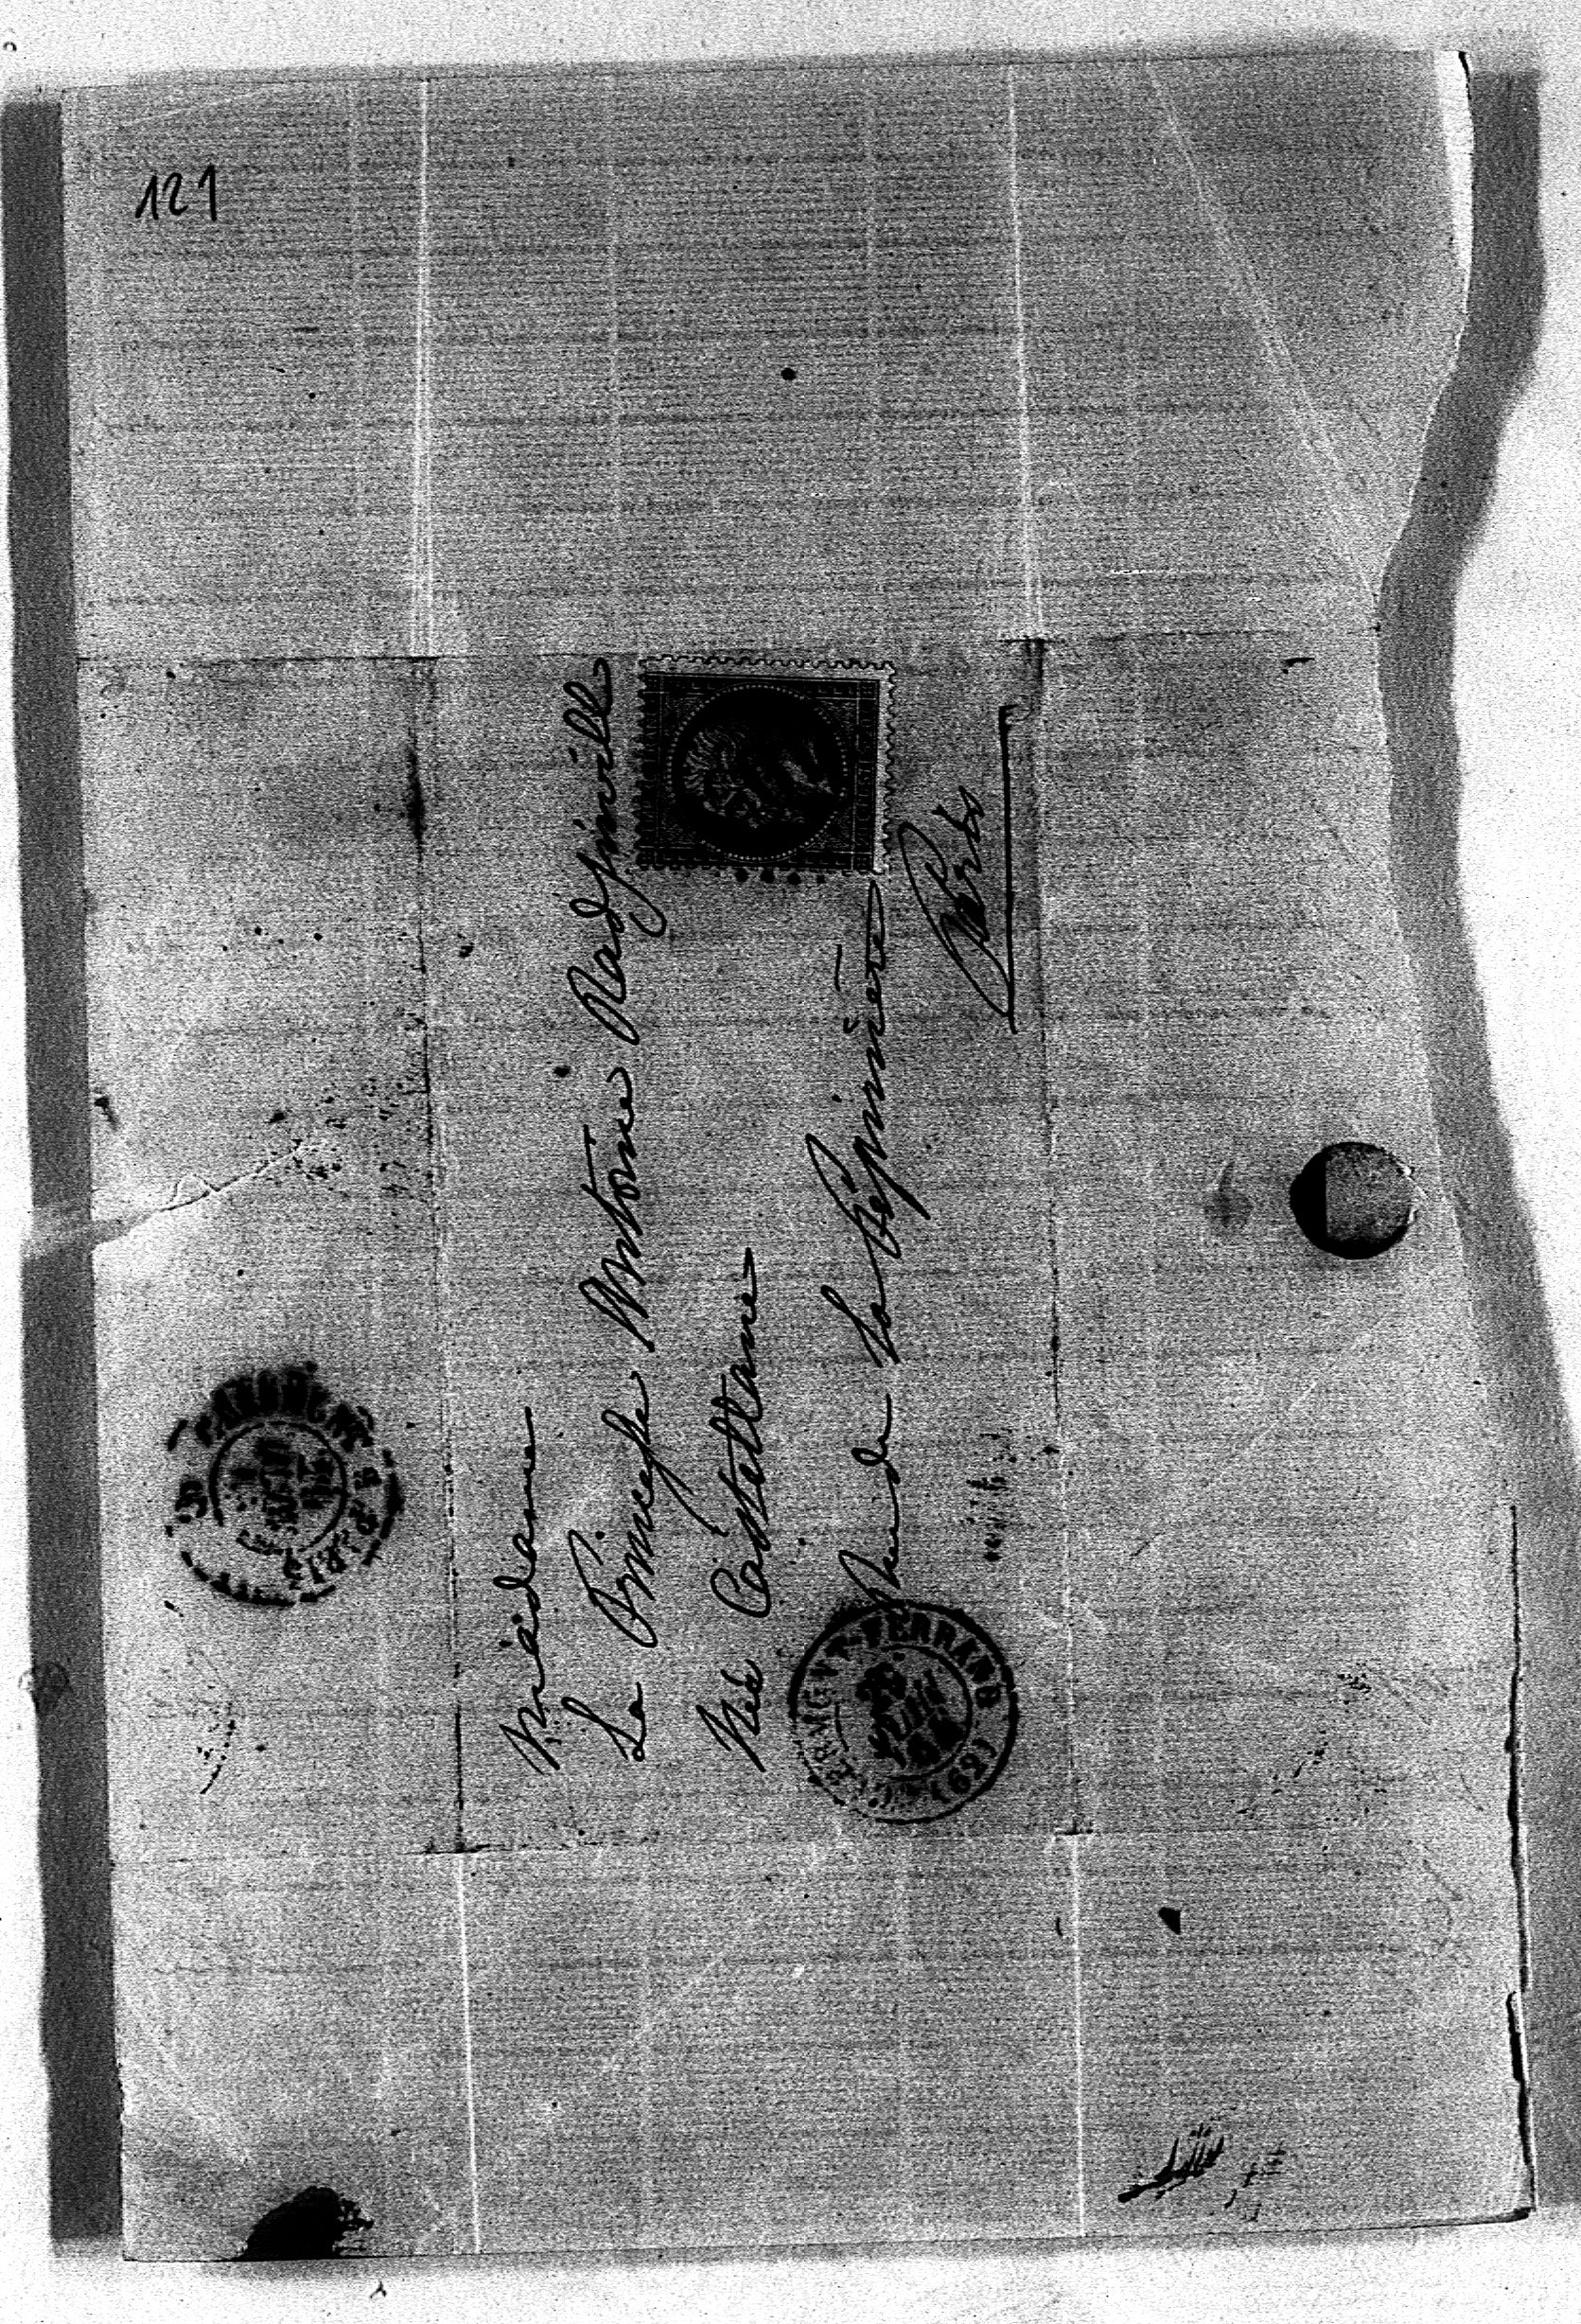 121
Madame
La Princesse Antoine Radziwill
Née Castellane
Rue de la Pépinière
Paris
CLERMONT-FERRAND
JUIN
(62)